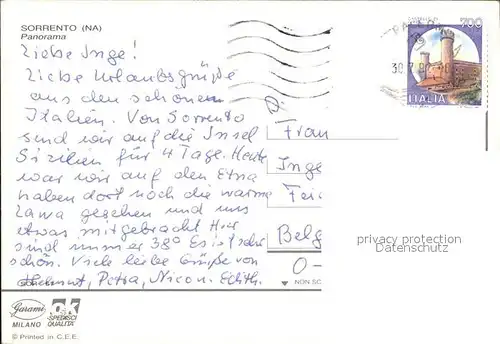 SORRENTO (NA)
Panorama
Liebe Inge!
Liebe Urlaubsgrüße
aus den schönen
Italien. Von Sorrento
sind wir auf die Insel
Sizilien für 4 Tage. Heute
war wir auf den Etna
haben dort noch die warme
Lava gesehen und uns
etwas mitgebracht Hier
sind immer 38° Es ist sehr
schön. Viele liebe Grüße von
Helmut, Petra, Nico u. Edith.
700
ITALIA
30.7.
Frau
Inge
Belg
O-
privacy protection
Datenschutz
NON SC
Garami
MILANO
ok
SPEDISCI
QUALITA'
© Printed in C.E.E.